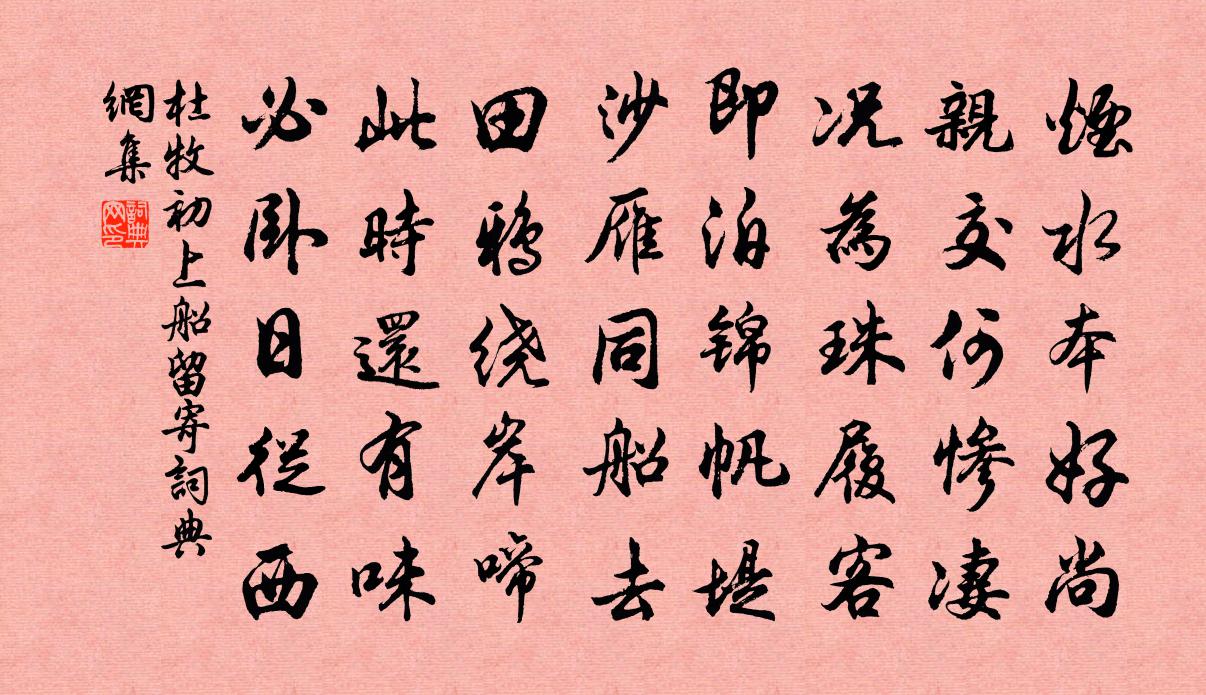 煙水本好尚
親交何慘凄
况為珠履客
即泊锦帆堤
沙雁同船去
田鸦绕岸啼
此時還有味
必卧日從西
杜牧初上船留寄詞典
網集
詞典
網印